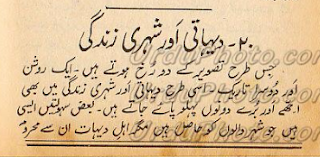 ۲۰۔ دیہاتی اور شہری زندگی
جس طرح تصویر کے دو رخ ہوتے ہیں۔ ایک روشن
اور دوسرا تاریک۔ اسی طرح دیہاتی اور شہری زندگی میں بھی
اچھے اور برے دونوں پہلو پائے جاتے ہیں۔ بعض سہولتیں ایسی
ہیں جو شہر والوں کو حاصل ہیں مگر اہل دیہات ان سے محروم